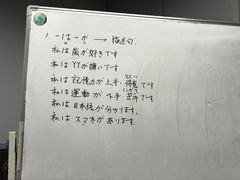 1. ～は～が → 描述句.
私は嵐が好きです
私はYYが嫌いです
私は記憶力が上手・得意です
とくい
私は運動が下手・苦手です
にがて
私は日本語が分かります.
私はスマホがあります.